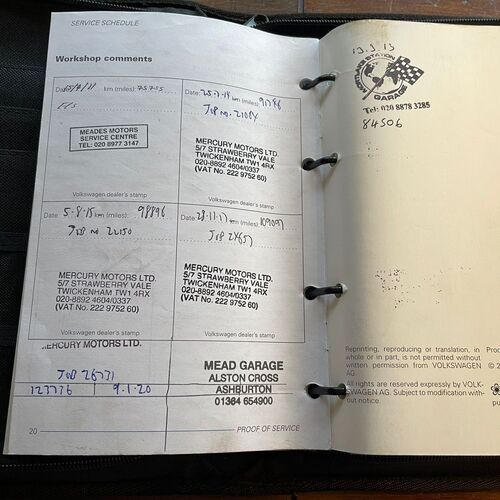 SERVICE SCHEDULE
Workshop comments
Date: km (miles):
MEADES MOTORS
SERVICE CENTRE
TEL: 020 8977 3147
Volkswagen dealer's stamp
Date: 25.7.14 km (miles): 91746
Job no. 21084
MERCURY MOTORS LTD.
5/7 STRAWBERRY VALE
TWICKENHAM TW1 4RX
020-8892 4604/0337
(VAT No. 222 9752 60)
Volkswagen dealer's stamp
5-8-15 km (miles): 98896
Job no. 22150
MERCURY MOTORS LTD.
5/7 STRAWBERRY VALE
TWICKENHAM TW1 4RX
020-8892 4604/0337
(VAT No. 222 9752 60)
Volkswagen dealer's stamp
28-11-17 km (miles): 109097
Job 24657
MERCURY MOTORS LTD.
5/7 STRAWBERRY VALE
TWICKENHAM TW1 4RX
020-8892 4604/0337
(VAT No. 222 9752 60)
Volkswagen dealer's stamp
MERCURY MOTORS LTD.
Job 26731
123776 9.1.20
MEAD GARAGE
ALSTON CROSS
ASHBURTON
01364 654900
20 PROOF OF SERVICE
STATION
GARAGE
Tel: 020 8878 3285
84506
Reprinting, reproducing or translation, in
whole or in part, is not permitted without
written permission from VOLKSWAGEN
AG
All rights are reserved expressly by VOLK-
SWAGEN AG. Subject to modification with-
out notice.